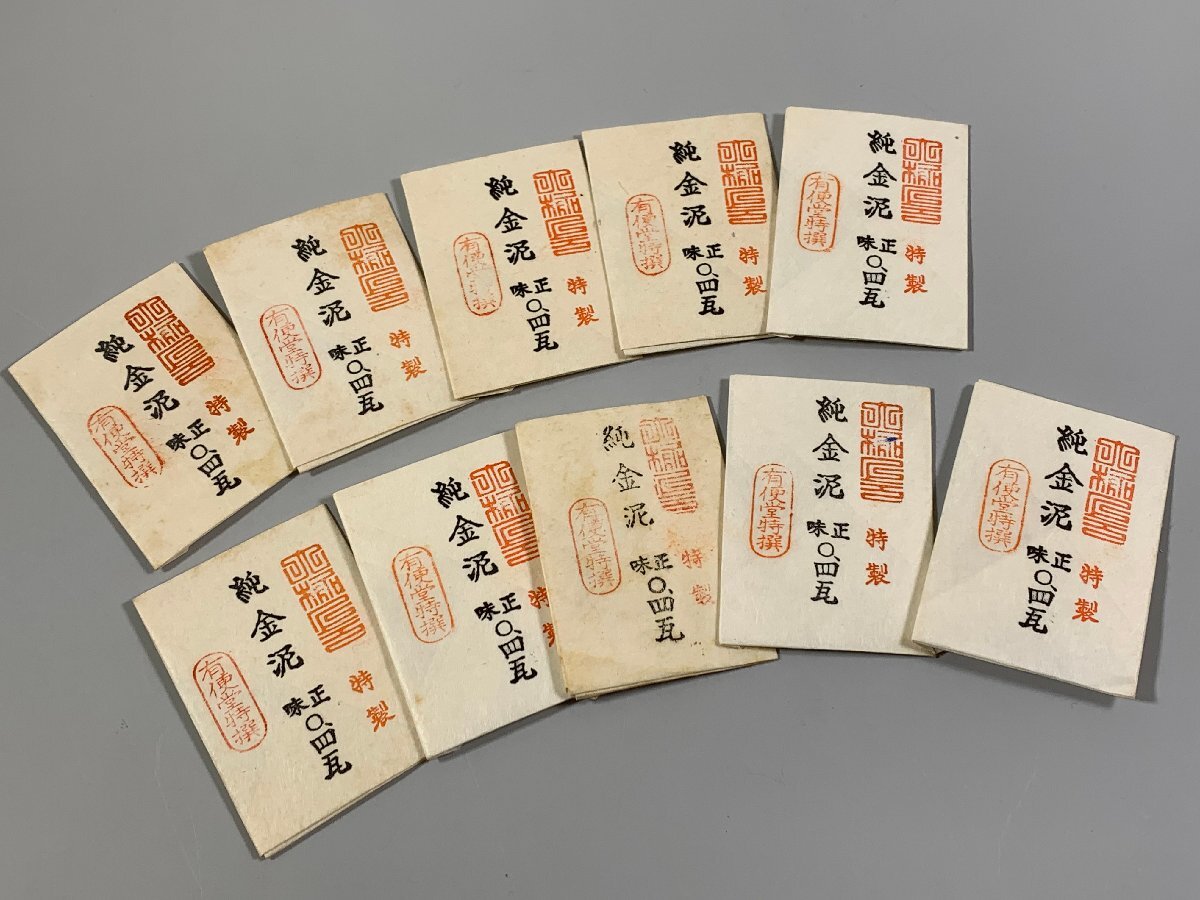 特製
純金泥 正味〇.四瓦
有便堂特撰
特製
純金泥 正味〇.四瓦
有便堂特撰
特製
純金泥 正味〇.四瓦
有便堂特撰
特製
純金泥 正味〇.四瓦
有便堂特撰
特製
純金泥 正味〇.四瓦
有便堂特撰
特製
純金泥 正味〇.四瓦
有便堂特撰
特製
純金泥 正味〇.四瓦
有便堂特撰
特製
純金泥 正味〇.四瓦
有便堂特撰
特製
純金泥 正味〇.四瓦
有便堂特撰
特製
純金泥 正味〇.四瓦
有便堂特撰